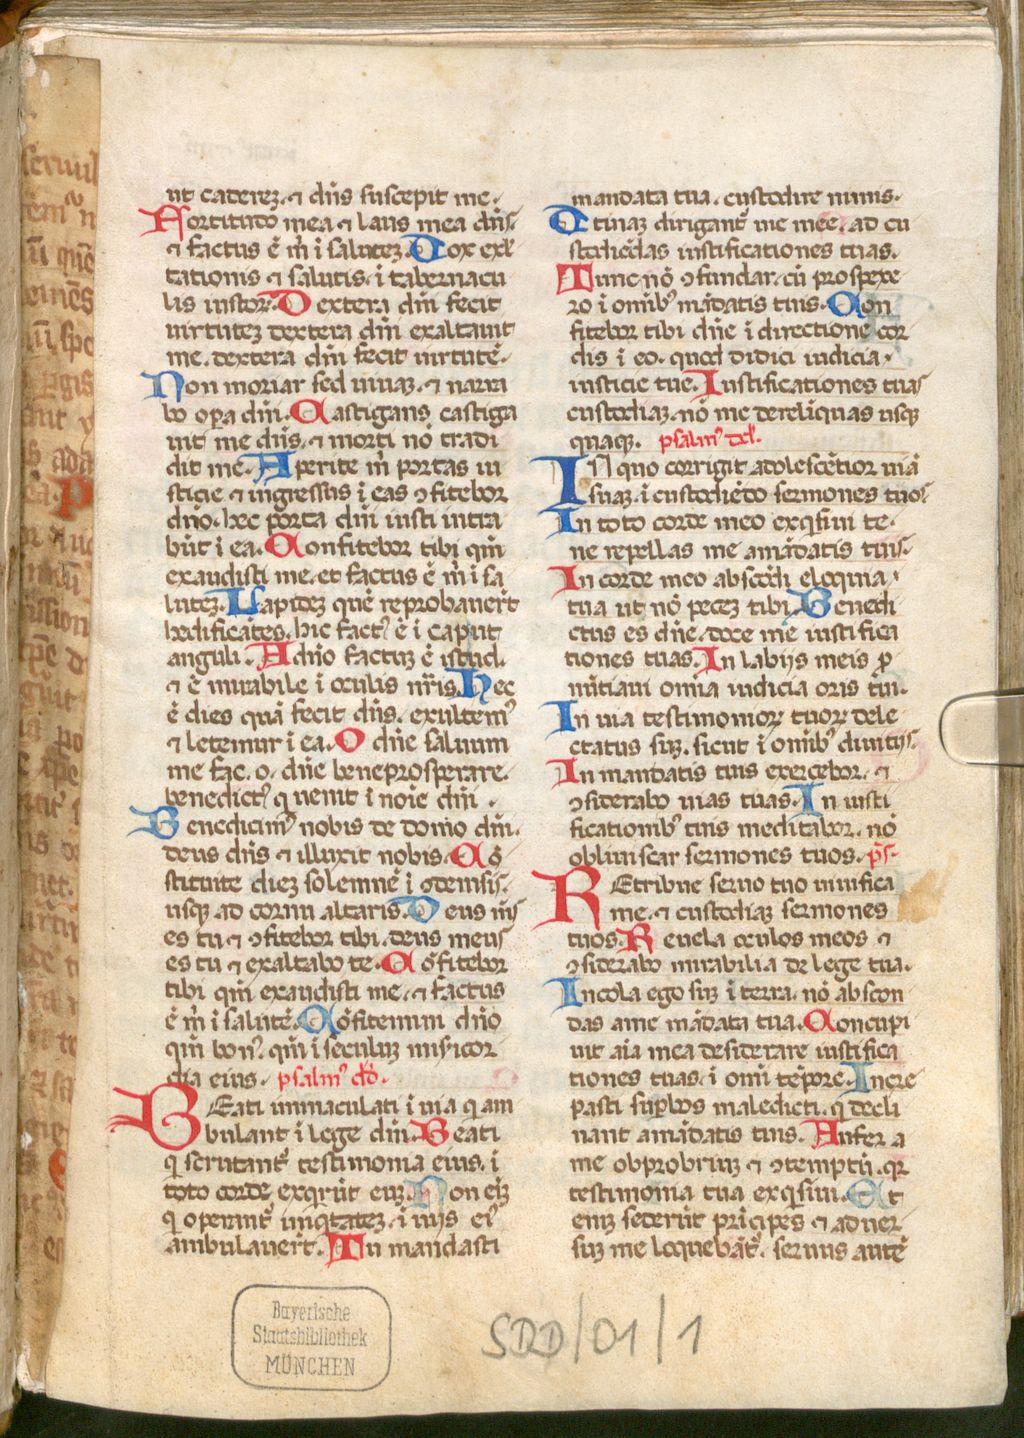 ut caderez. ⁊ dñs suscepit me.
Fortitudo mea ⁊ laus mea dñs.
⁊ factus ẽ m̃ i salutez. Uox exl
tationis ⁊ salutis. i tabernacu
lis iustor. Dextera dñi fecit
uirtutez dextera dñi exaltauit
me. dextera dñi fecit uirtutẽ.
Non moriar sed uiuaz. ⁊ narra
bo opa dñi. Castigans castiga
uit me dñs. ⁊ morti nõ tradi
dit me. Aperite m̃ portas iu
sticie ⁊ ingressus i eas ꝯfitebor
dño. hec porta dñi iusti intra
bũt i ea. Confitebor tibi qm̃
exaudisti me. et factus ẽ m̃ i sa
lutez. Lapidez quẽ reprobauer̃t
hedificãtes. hic factꝰ ẽ i caput
anguli. A dño factuz ẽ istud.
⁊ ẽ mirabile i oculis nr̃is. Hec
ẽ dies quã fecit dñs. exultemꝰ
⁊ letemur i ea. O dñe saluum
me fac. o. dñe beneprosperare.
benedictꝰ q uenit i noĩe dñi.
Benedicimꝰ nobis de domo dñi.
deus dñs ⁊ illuxit nobis. Cõ
stituite diez solemnẽ i ꝯdensis.
usqꝫ ad cornu altaris. Deus m̃s
es tu. ⁊ ꝯfitebor tibi. deus meus
es tu ⁊ exaltabo te. Cõfitebor
tibi qm̃ exaudisti me. ⁊ factus
ẽ m̃ i salutẽ. Cõfitemini dño
qm̃ bonꝰ. qm̃ i seculuz misicor
dia eius. psalmꝰ dd̃.
BEati immaculati i uia q am
bulant i lege dñi. Beati
q scrutant̃ testimonia eius. i
toto corde exqrũt euz. Non eĩz
q operant̃ iniqtatez. i uijs eiꝰ
ambulauer̃t. Tu mandasti
mandata tua. custodire nimis.
Utinaz dirigant̃ uie mee. ad cu
stodiẽdas iustificationes tuas.
Tunc nõ ꝯfundar. cũ prospexe
ro i omibꝰ mãdatis tuis. Con
fitebor tibi dñe i directione cor
dis i eo. quod didici iudicia.
iusticie tue. Iustificationes tuas
custodiaz. nõ me derelĩquas usqꝫ
quaqꝫ. psalmꝰ del.
IN quo corrigit adolescẽtior uiã
suaz. i custodiẽdo sermones tuos
In toto corde meo exqsiui te.
ne repellas me amãdatis tuis.
In corde meo abscõdi eloquia.
tua ut nõ peccez tibi. Benedi
ctus es dñe. doce me iustifica
tiones tuas. In labijs meis p
nũtiaui omia iudicia oris tui.
In uia testimonioꝝ tuoꝝ dele
ctatus suz. sicut i omibꝰ diuitijs.
In mandatis tuis exercebor. ⁊
ꝯsiderabo uias tuas. In iusti
ficationibꝰ tuis meditabor. nõ
obliuiscar sermones tuos. ps̃.
REtribue seruo tuo uiuifica
me. ⁊ custodiaz sermones
tuos. Reuela oculos meos ⁊
ꝯsiderabo mirabilia de lege tua.
Incola ego suz i terra. nõ abscon
das ame mãdata tua. Concupi
uit aĩa mea desiderare iustifica
tiones tuas. i omi tẽpore. Incre
pasti supbos maledicti. q decli
nant amãdatis tuis. Aufer a
me obprobriuz ⁊ ꝯtemptũ. qꝛ
testimonia tua exqsiui. Et
eniz sederũt prĩcipes ⁊ aduer
suz me loquebãt̃. seruus autẽ
Bayerische
Staatsbibliothek
MÜNCHEN
SDD/01/1